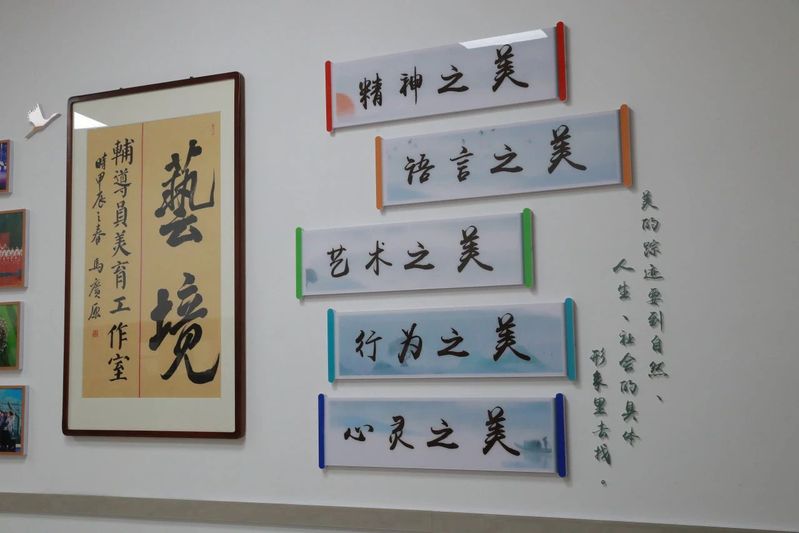 藝境
輔導員美育工作室
時甲辰之春 馬廣原
精神之美
语言之美
艺术之美
行为之美
心灵之美
美的踪迹要到自然、
人生、社会的具体
形象里去找。